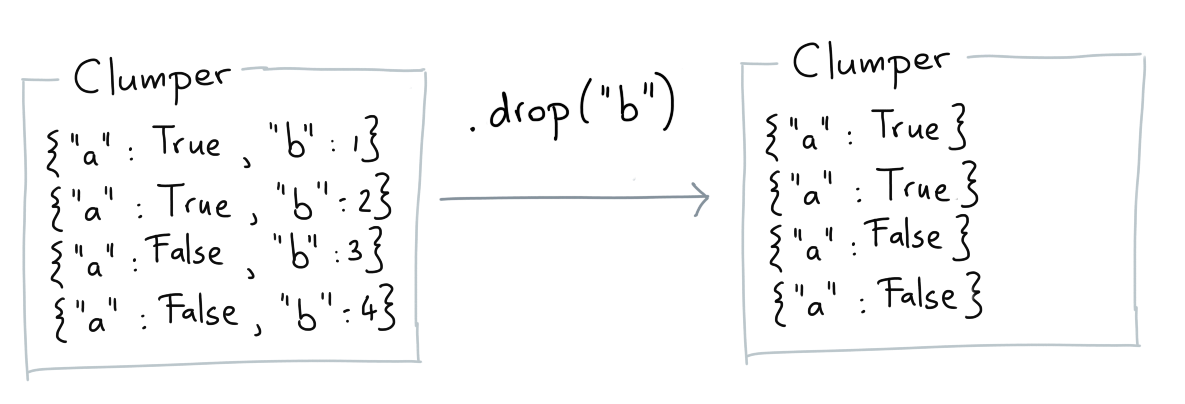 Clumper
{"a" : True , "b" : 1}
{"a" : True , "b" : 2}
{"a" : False , "b" : 3}
{"a" : False , "b" : 4}
.drop("b")
Clumper
{"a" : True}
{"a" : True}
{"a" : False}
{"a" : False}